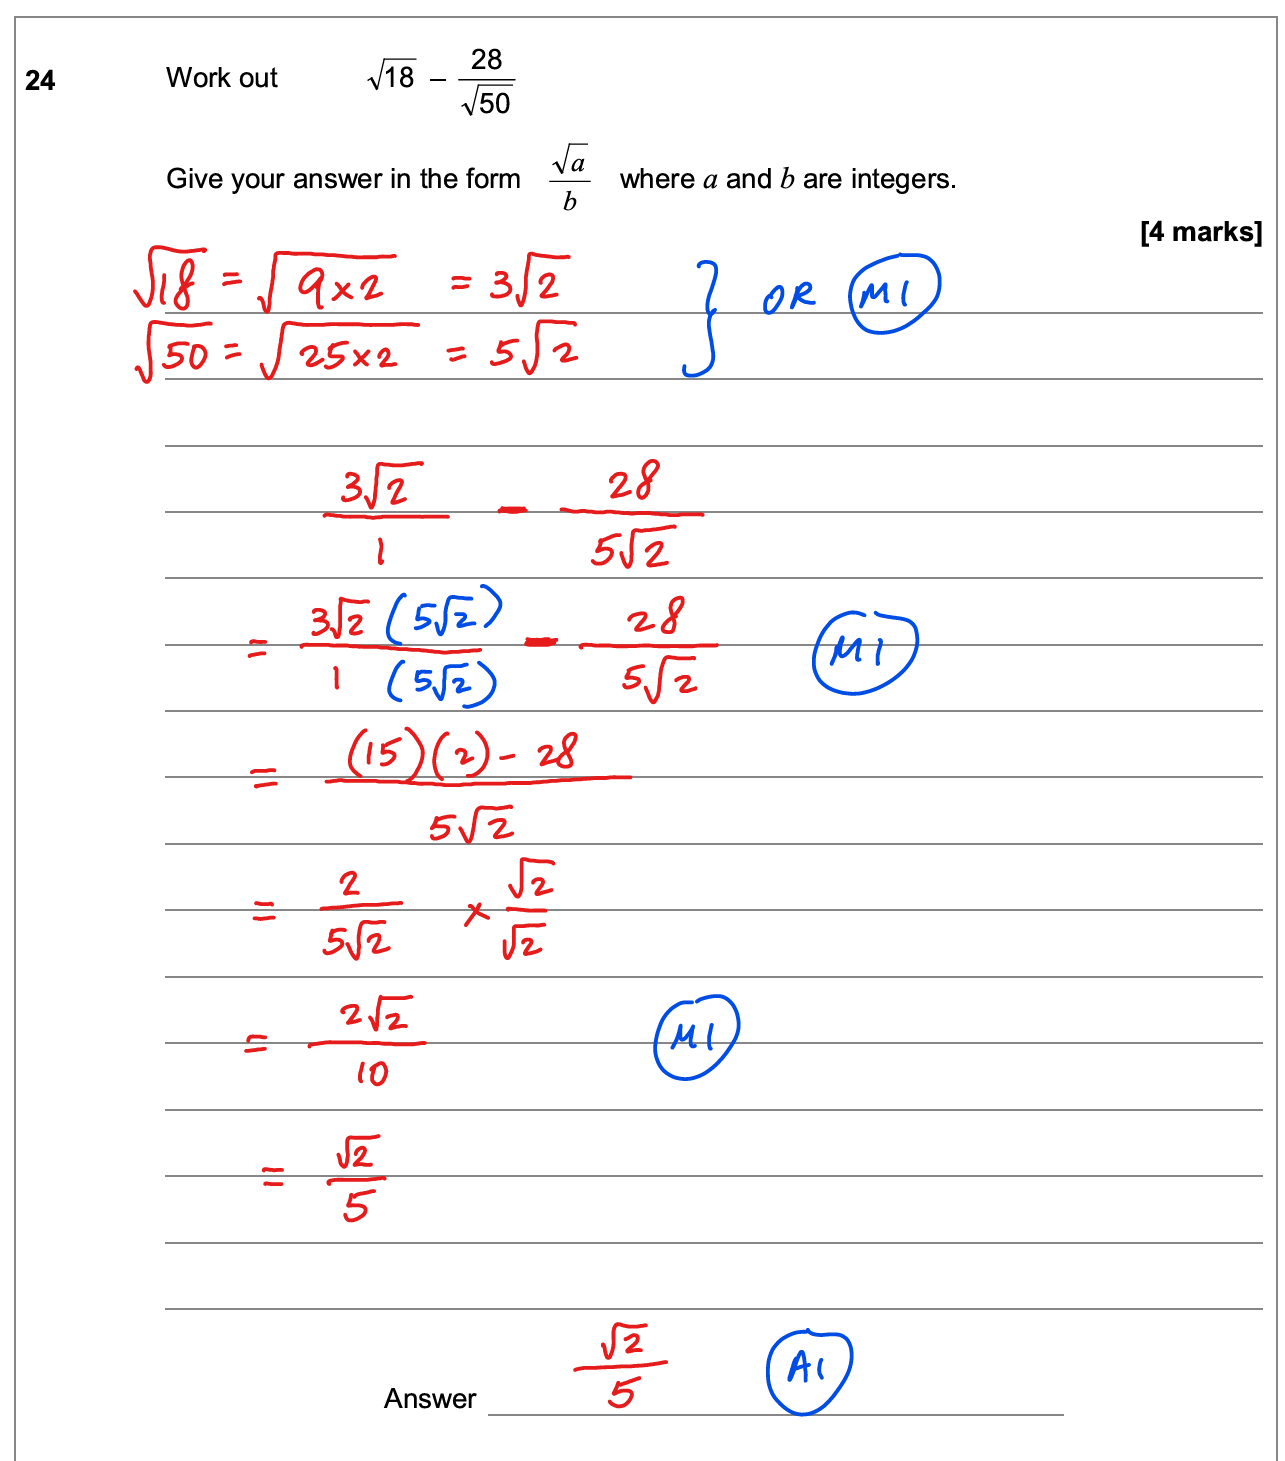 24 Work out √18 − 28/√50
Give your answer in the form √a/b where a and b are integers.
[4 marks]
√18 = √9×2 = 3√2 } OR M1
√50 = √25×2 = 5√2
3√2/1 − 28/5√2
= 3√2 (5√2)/1 (5√2) − 28/5√2 M1
= (15)(2) − 28/5√2
= 2/5√2 × √2/√2
= 2√2/10 M1
= √2/5
Answer √2/5 A1